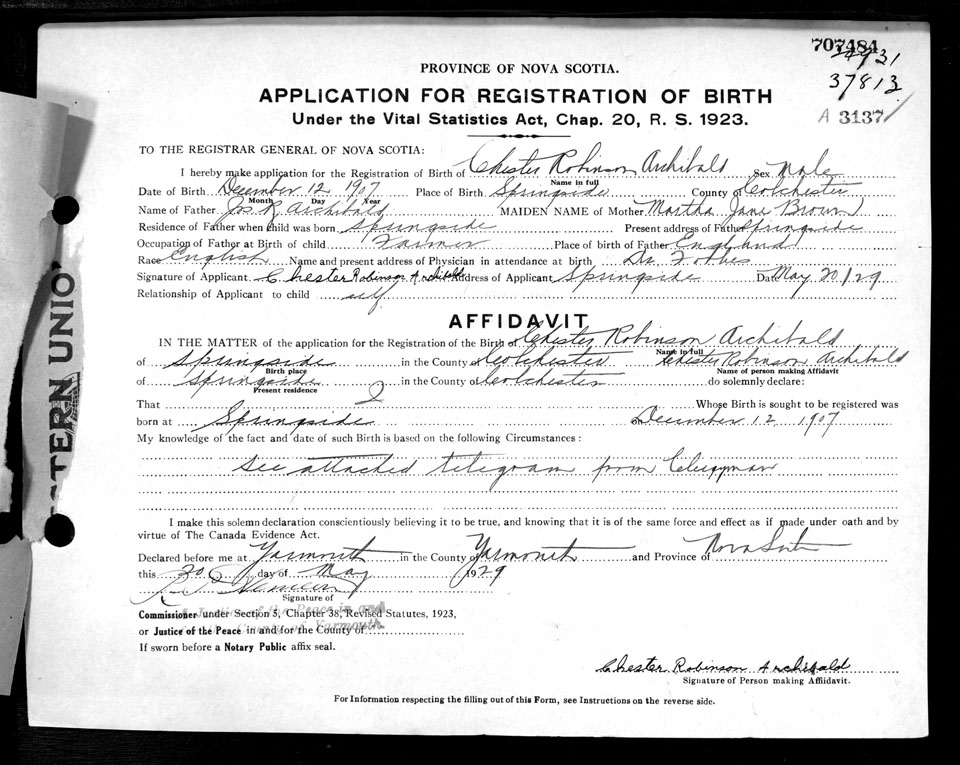 707484
4931
37813
A 3137
PROVINCE OF NOVA SCOTIA.
APPLICATION FOR REGISTRATION OF BIRTH
Under the Vital Statistics Act, Chap. 20, R. S. 1923.
TO THE REGISTRAR GENERAL OF NOVA SCOTIA:
I hereby make application for the Registration of Birth of Chester Robinson Archibald Sex Male
Name in full
Date of Birth December 12 1907 Place of Birth Springside County of Colchester
Month Day Year
Name of Father Jos R Archibald MAIDEN NAME of Mother Martha Jane Brown
Residence of Father when child was born Springside Present address of Father Springside
Occupation of Father at Birth of child Farmer Place of birth of Father England
Race English Name and present address of Physician in attendance at birth Dr. Forbes
Signature of Applicant Chester Robinson Archibald Address of Applicant Springside Date May 20/29
Relationship of Applicant to child self
AFFIDAVIT
IN THE MATTER of the application for the Registration of the Birth of Chester Robinson Archibald
Name in full
of Springside in the County of Colchester Chester Robinson Archibald
Birth place Name of person making Affidavit
of Springside in the County of Colchester do solemnly declare:
Present residence
That I Whose Birth is sought to be registered was
born at Springside December 12 1907
My knowledge of the fact and date of such Birth is based on the following Circumstances:
See attached telegram from Clergyman
I make this solemn declaration conscientiously believing it to be true, and knowing that it is of the same force and effect as if made under oath and by
virtue of The Canada Evidence Act.
Declared before me at Yarmouth in the County of Yarmouth and Province of Nova Scotia
this 20 day of May 1929
Signature of
A Justice of the Peace in and
Commissioner under Section 5, Chapter 38, Revised Statutes, 1923,
County of Yarmouth.
or Justice of the Peace in and for the County of
If sworn before a Notary Public affix seal.
Chester Robinson Archibald
Signature of Person making Affidavit.
For Information respecting the filling out of this Form, see Instructions on the reverse side.
STERN UNIO